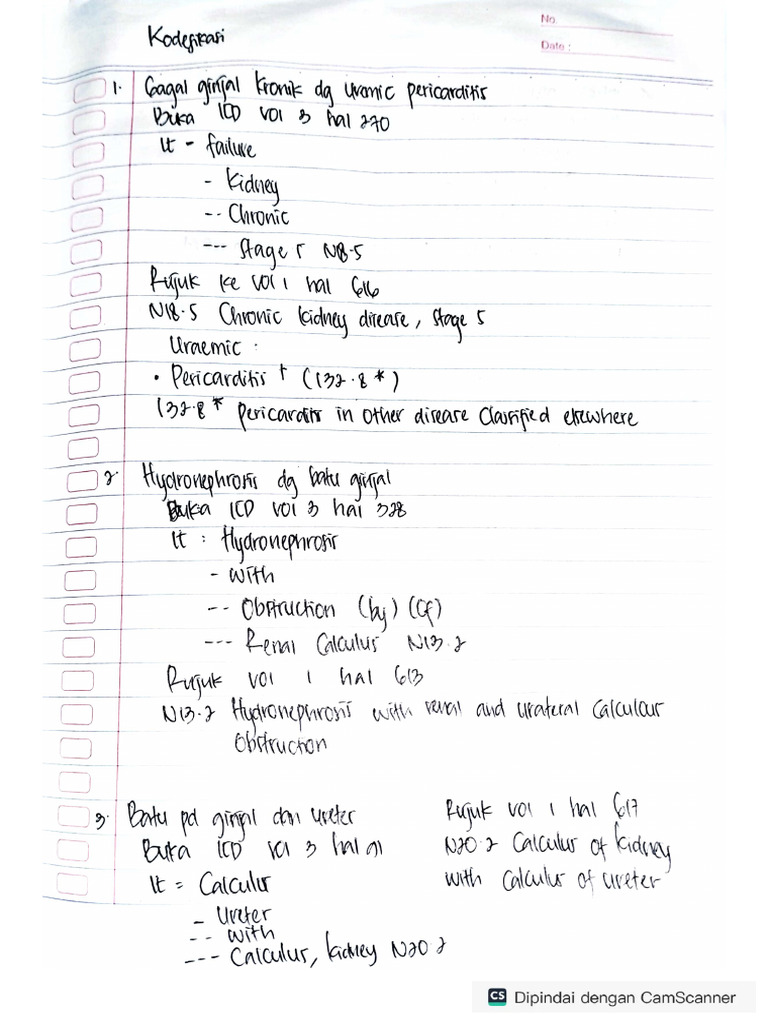 Kodefikasi
No.
Date :
1. Gagal ginjal kronik dg uremic pericarditis
Buka ICD vol 3 hal 270
lt - failure
- Kidney
-- Chronic
--- Stage 5 N18.5
Rujuk ke vol 1 hal 616
N18.5 Chronic kidney disease, stage 5
Uraemic :
• Pericarditis † (I32.8*)
I32.8* pericarditis in other disease classified elsewhere
2. Hydronephrosis dg batu ginjal
Buka ICD vol 3 hal 328
lt : Hydronephrosis
- with
-- Obstruction (by) (of)
--- Renal Calculus N13.2
Rujuk vol 1 hal 613
N13.2 Hydronephrosis with renal and urateral calculour
Obstruction
3. Batu pd ginjal dan ureter
Buka ICD vol 3 hal 91
lt = Calculus
- Ureter
-- with
--- Calculus, kidney N20.2
Rujuk vol 1 hal 617
N20.2 Calculus of kidney
with calculus of ureter
CS Dipindai dengan CamScanner